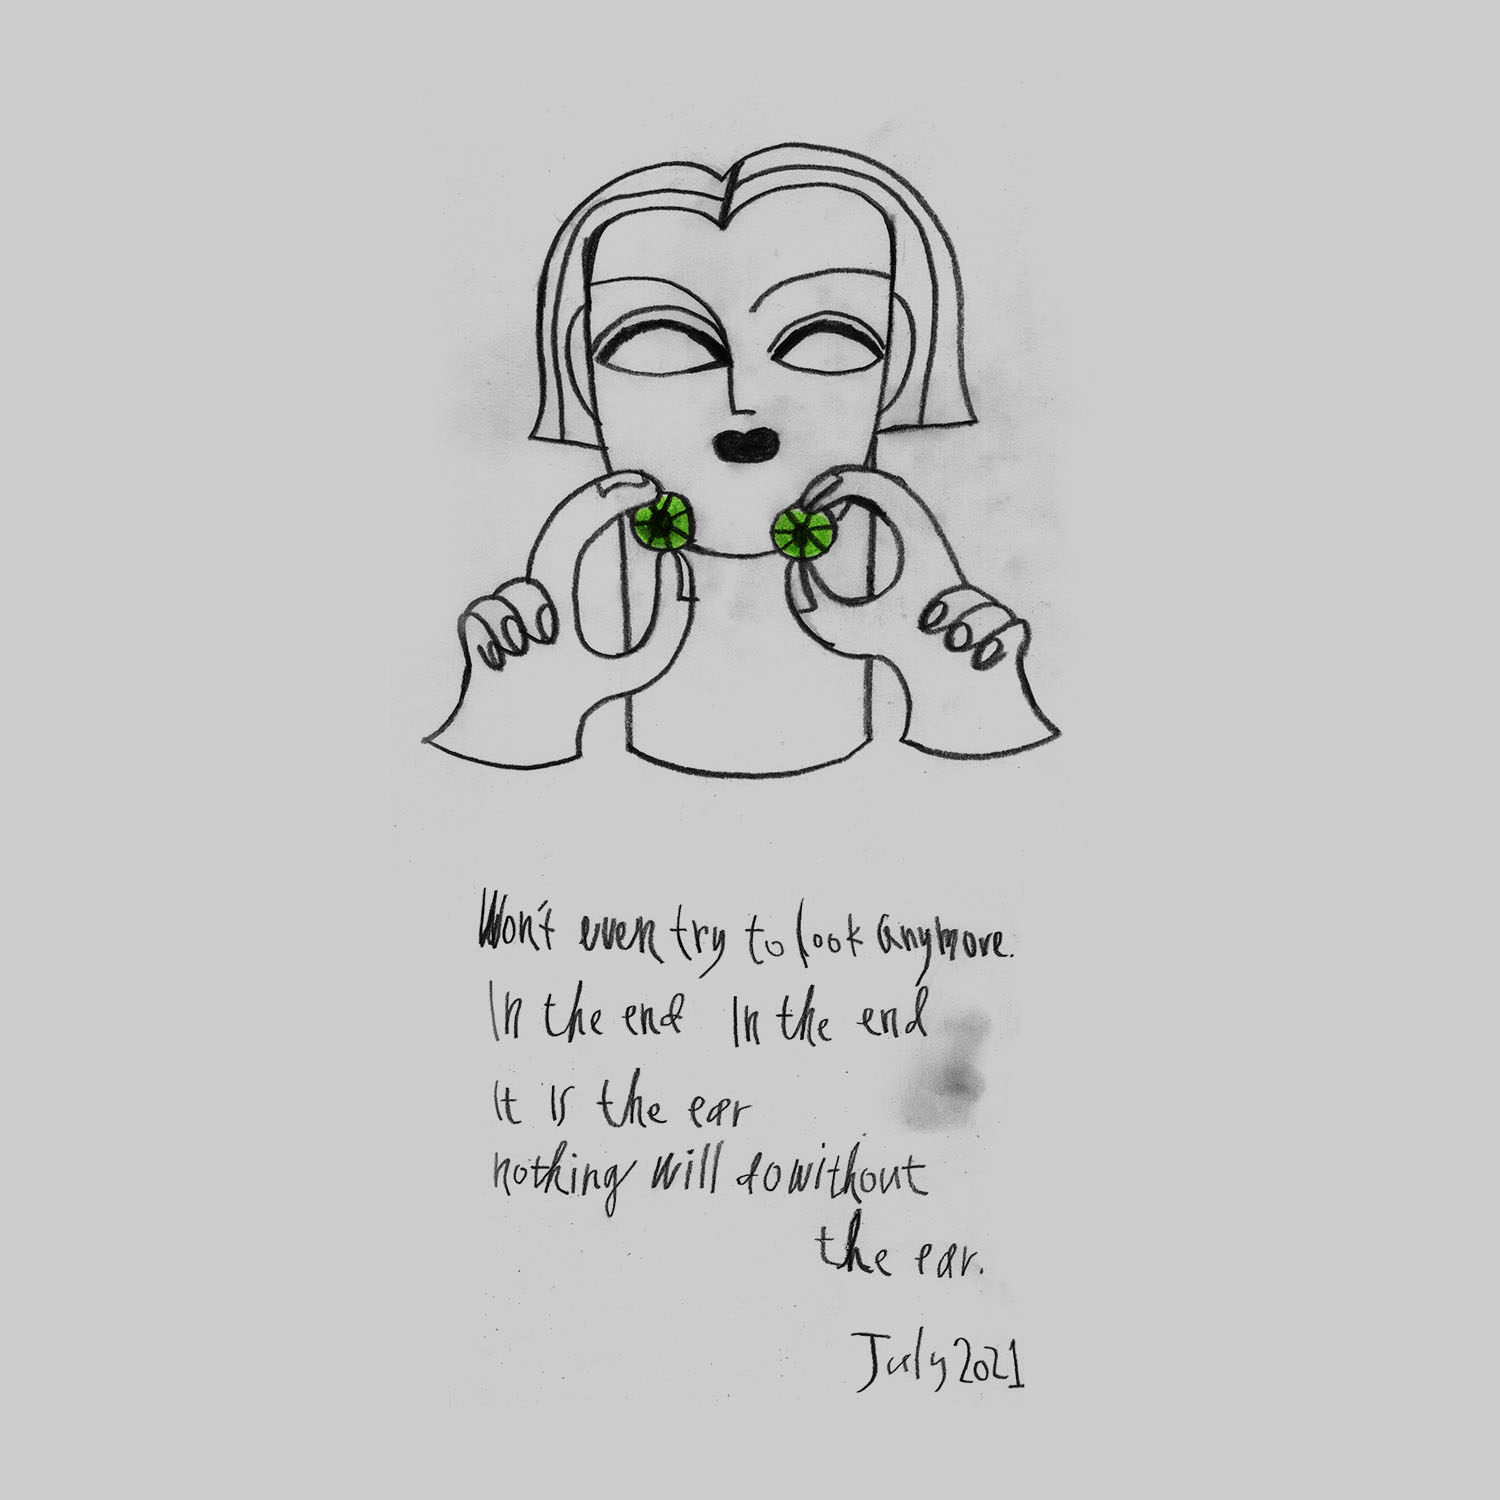 Won't even try to look anymore.
In the end In the end
It is the ear
nothing will do without
the ear.
July 2021